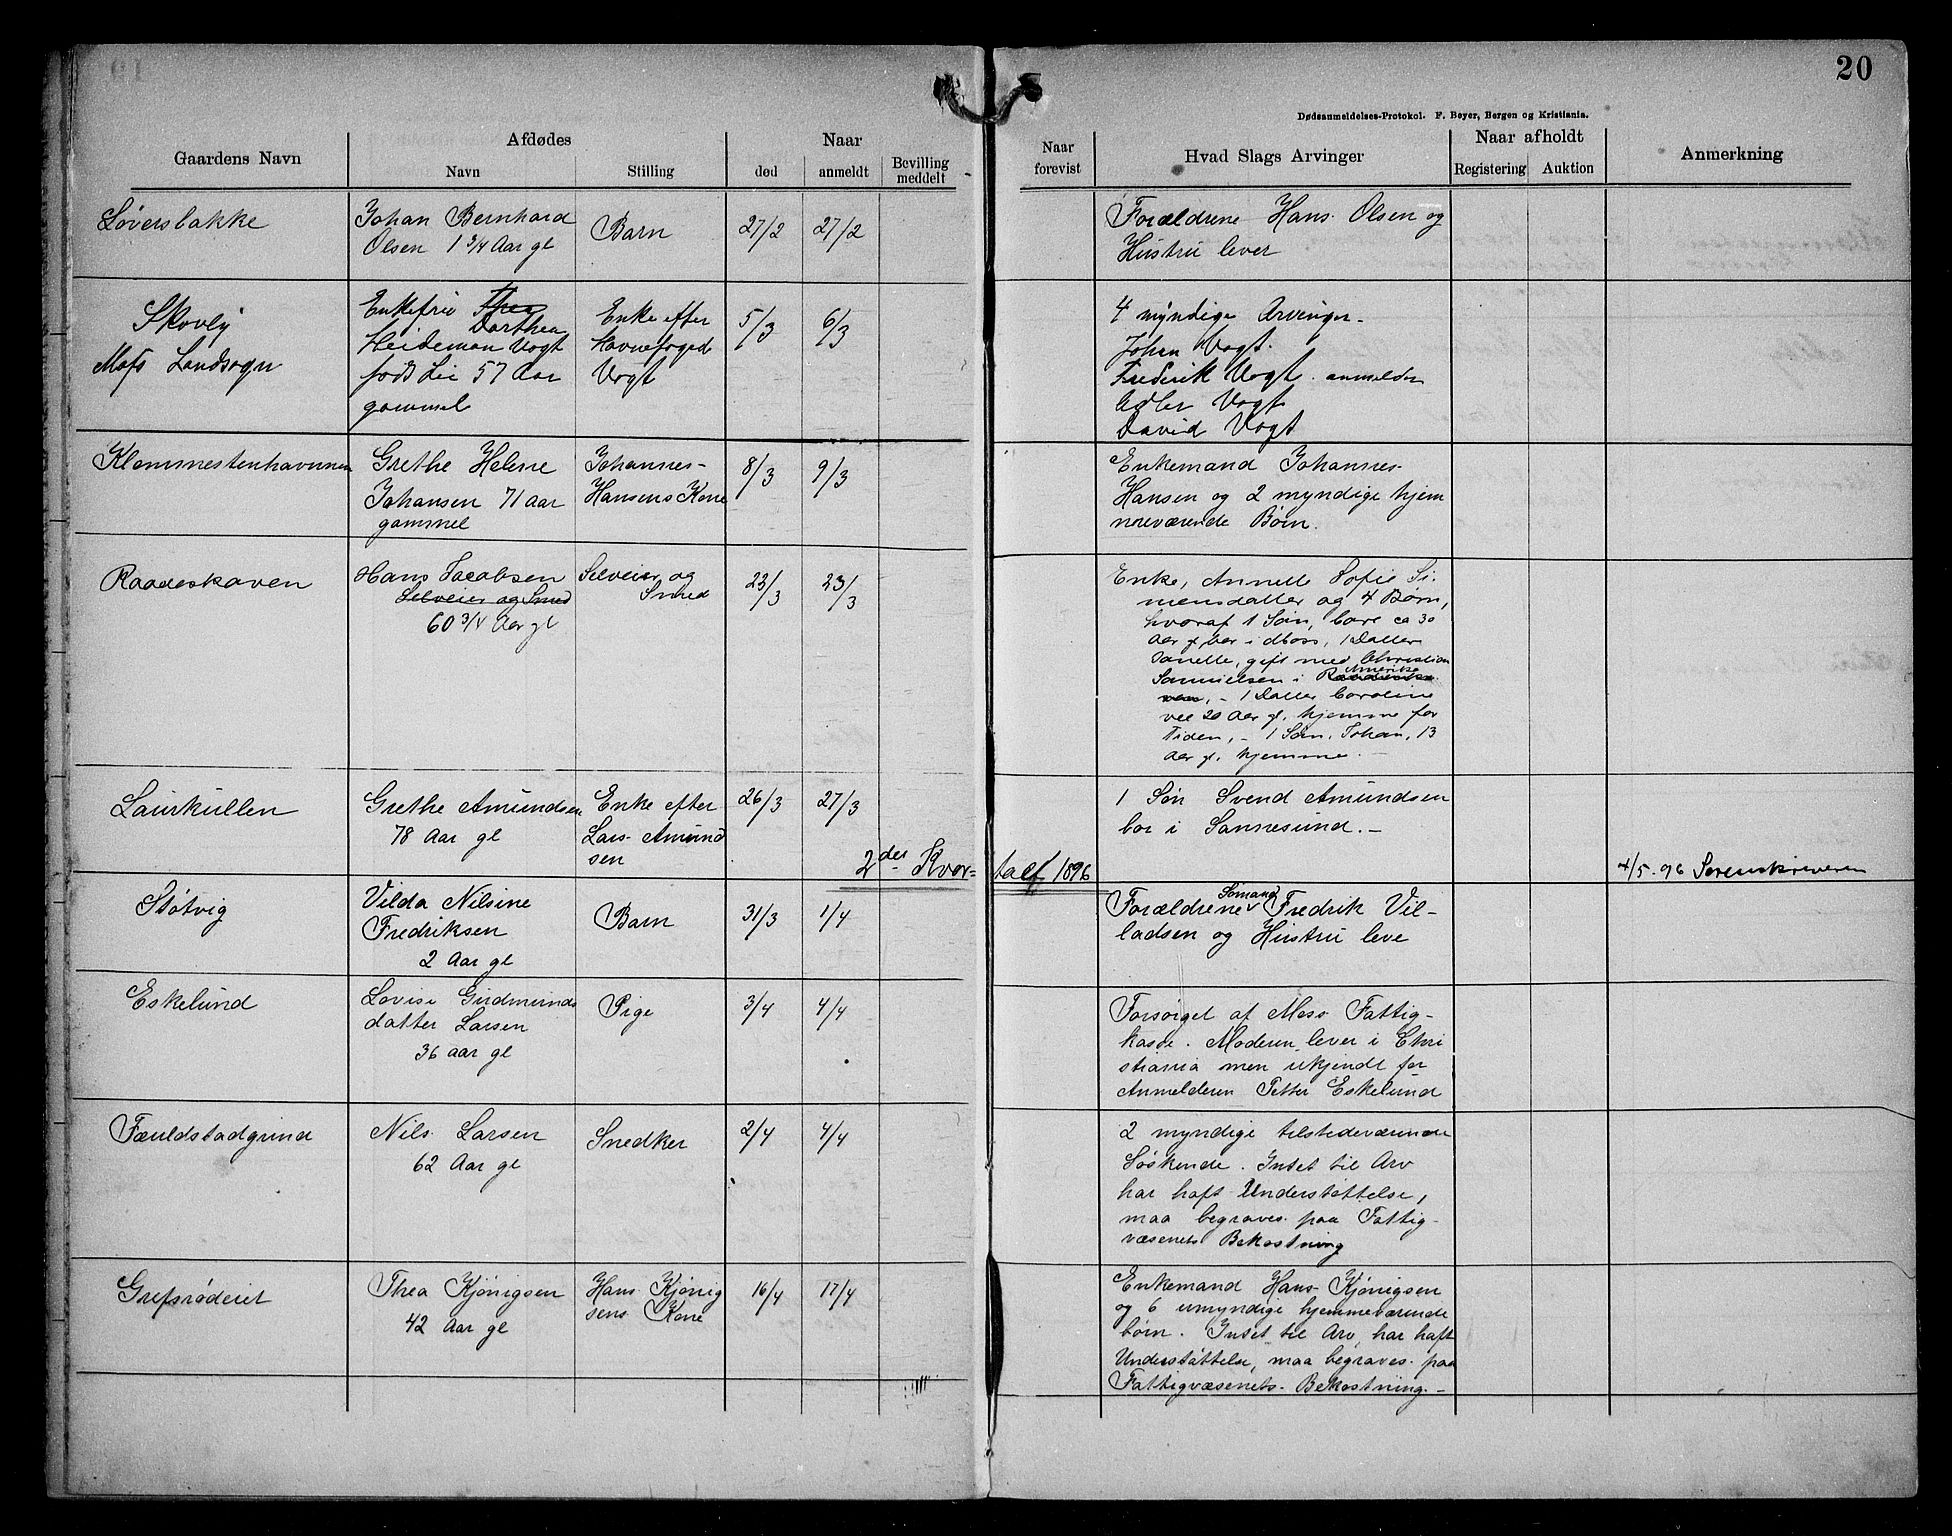 20
Dødsanmeldelses-Protokol. F. Beyer, Bergen og Kristiania.
Gaardens Navn
Afdødes
Navn
Stilling
Naar
død
anmeldt
Bevilling
meddelt
Naar
forevist
Hvad Slags Arvinger
Naar afholdt
Registering
Auktion
Anmerkning
Løversbakke
Johan Bernhard
Olsen 1 3/4 Aar gl
Barn
27/2
27/2
Forældrene Hans Olsen og
Hustru lever
Skovly
Moss Landsogn
Enkefru Thea
Dorthea
Heideman Vogt
født Lie 57 Aar
gammel
Enke efter
Havnefoged
Vogt
5/3
6/3
4 myndige Arvinger
Johan Vogt.
Frederik Vogt. anmelder
Adler Vogt
David Vogt
Klommestenhavnen
Grethe Helene
Johansen 71 aar
gammel
Johannes
Hansens Kone
8/3
9/3
Enkemand Johannes
Hansen og 2 myndige hjem
meværende Børn.
Raadeskoven
Hans Jacobsen
Selveier og Smed
60 3/4 Aar gl
Selveier og
Smed
23/3
23/3
Enke, Annette Sofie Si-
mensdatter og 4 Børn,
hvoraf 1 Søn, ca 30
Aar gl, 1 Datter
Janette, gift med Christian
Amerika
Samuelsen i
1 Datter Caroline
ved 20 Aar gl, hjemme for
Tiden, - 1 Søn, Johan, 13
Aar gl, hjemme.
Laurkullen
Grethe Amundsen
78 Aar gl
Enke efter
Lars Amund
sen
26/3
27/3
1 Søn Svend Amundsen
bor i Sannesund. -
2det Kvar-
tal 1896
4/5. 96 Sorenskriveren
Støtvig
Vilda Nilsine
Fredriksen
2 Aar gl
Barn
31/3
1/4
Sømand
Forældrene Fredrik Vil-
ladsen og Hustru leve
Eskelund
Lovise Gudmunds
datter Larsen
36 aar gl
Pige
3/4
4/4
Forsørget af Moss Fattig-
kasse. Moderen lever i Chri
stiania men ukjendt for
Anmelderen Petter Eskelund
Fæuldstadgrind
Nils Larsen
62 Aar gl
Snedker
2/4
4/4
2 myndige tilstedeværende
Søskende. Intet til Arv
har haft Understøttelse,
maa begraves paa Fattig-
væsenets Bekostning
Grefsrødeiet
Thea Kjønigsen
42 Aar gl
Hans Kjønig
sens Kone
16/4
17/4
Enkemand Hans Kjønigsen
og 6 umyndige hjemmeværende
børn. Intet til Arv, har haft
Understøttelse, maa begraves paa
Fattigvæsenets Bekostning. -